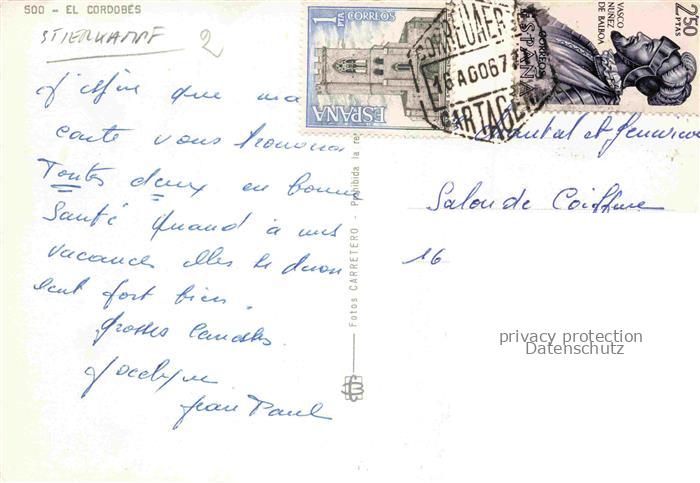 500 - EL CORDOBÉS
STIERKAMPF 2
J'espère que ma
carte vous trouvera
Toutes deux en bonne
Santé quand à mes
vacances elles se
fort bien.
Grosses
Jocelyne
Jean Paul
Fotos CARRETERO - Prohibida la re
1 PTA CORREOS
ESPAÑA
CORREO AEREO
16 AGO 67
CARTAGENA
2'50 PTAS
VASCO NUÑEZ DE BALBOA
CORREOS
ESPAÑA
Chantal et
Salon de Coiffure
16
privacy protection
Datenschutz